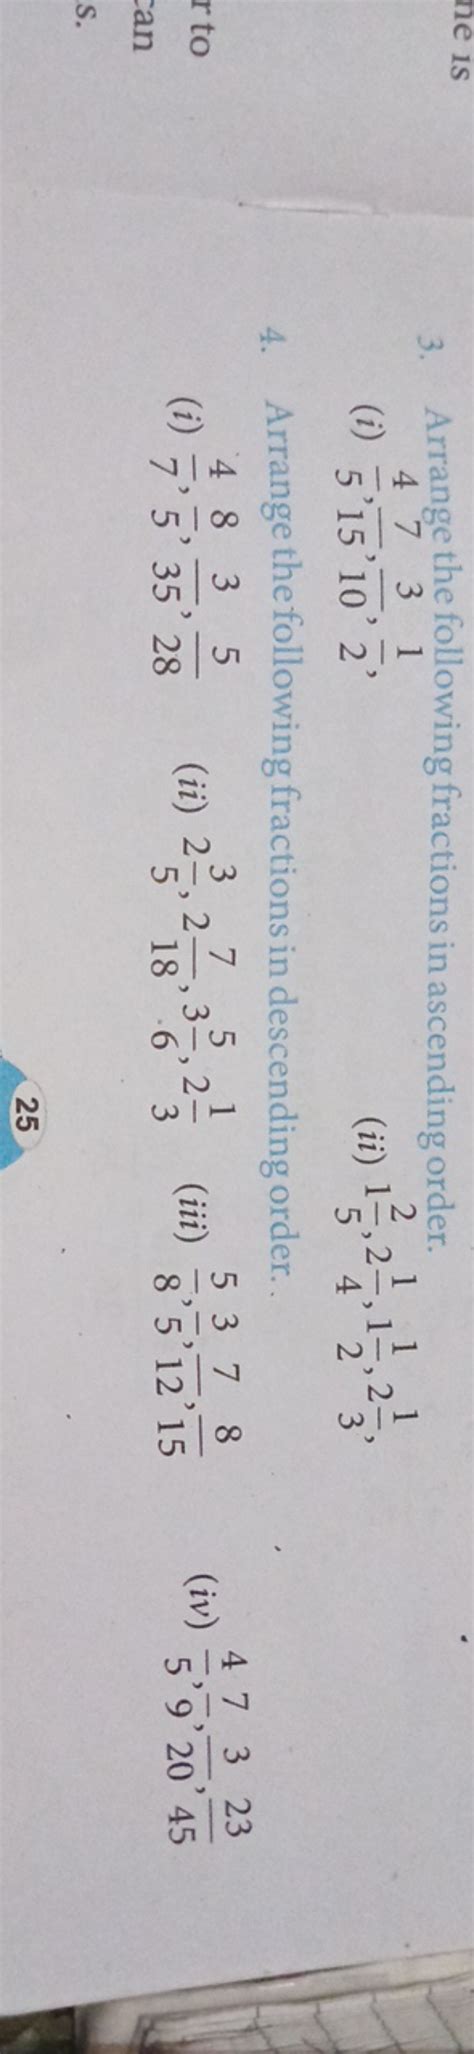 ne is
3. Arrange the following fractions in ascending order.
(i) 4/5, 7/15, 3/10, 1/2, (ii) 1 2/5, 2 1/4, 1 1/2, 2 1/3,
4. Arrange the following fractions in descending order.
(i) 4/7, 8/5, 3/35, 5/28 (ii) 2 3/5, 2 7/18, 3 5/6, 2 1/3 (iii) 5/8, 3/5, 7/12, 8/15 (iv) 4/5, 7/9, 3/20, 23/45
r to
can
s.
25